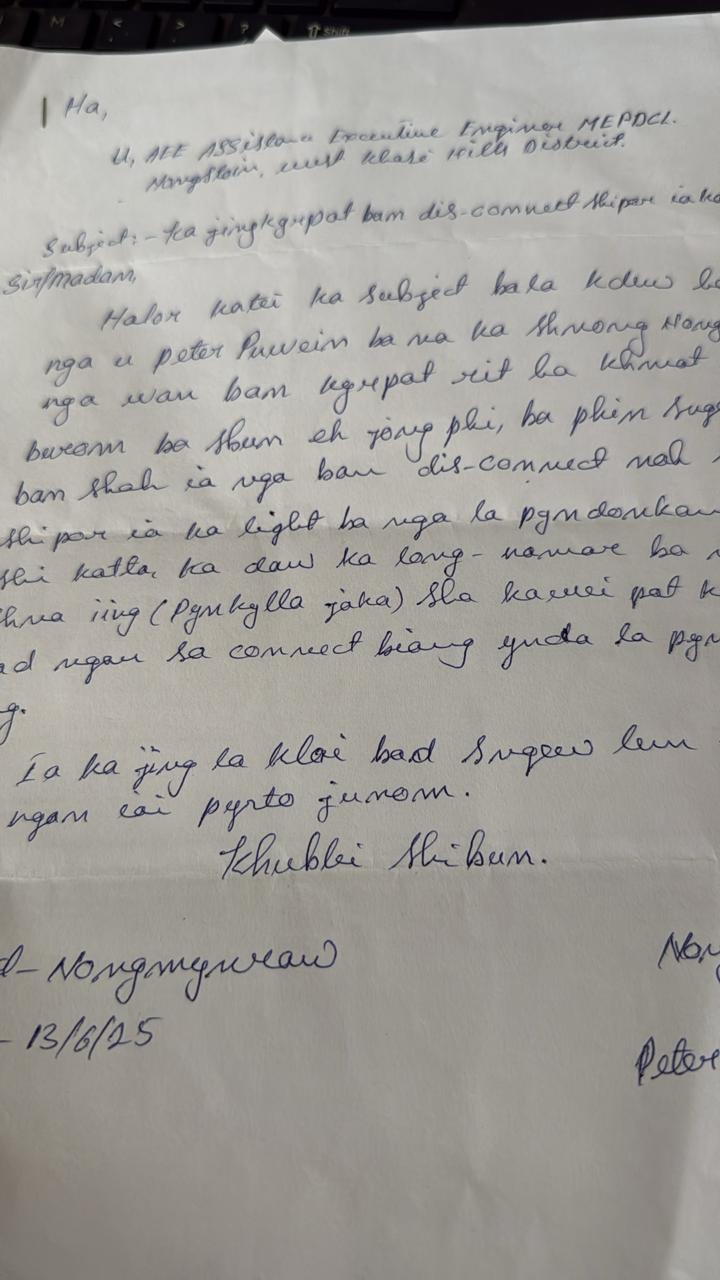 Ha,
U, AEE Assistana Executive Enginer MEPDCL.
Nongstoin, west Khasi Hills District.
Subject:- Ka jingkyrpat bam dis-connect shipor ia ka
Sir/madam,
Halor katei ka subject bala kdew
nga u Peter Puwein ba na ka shnong Nong
nga wan bam kyrpat rit ha khmat
burom ba shun eh jong phi, ba phin sng
ban shah ia nga ban dis-connect noh
shipor ia ka light ba nga la pyndonkam
shi katta, ka daw ka long-namar ba
iing (Pynkylla jaka) sha kawei pat
ad ngan sa connect biang ynda la pyn
g.
Ia ka jing la kloi bad sngew lem
ngan iai pyrto junom.
Khublei shibun.
d- Nongmynsaw
- 13/6/25
Non
Peter